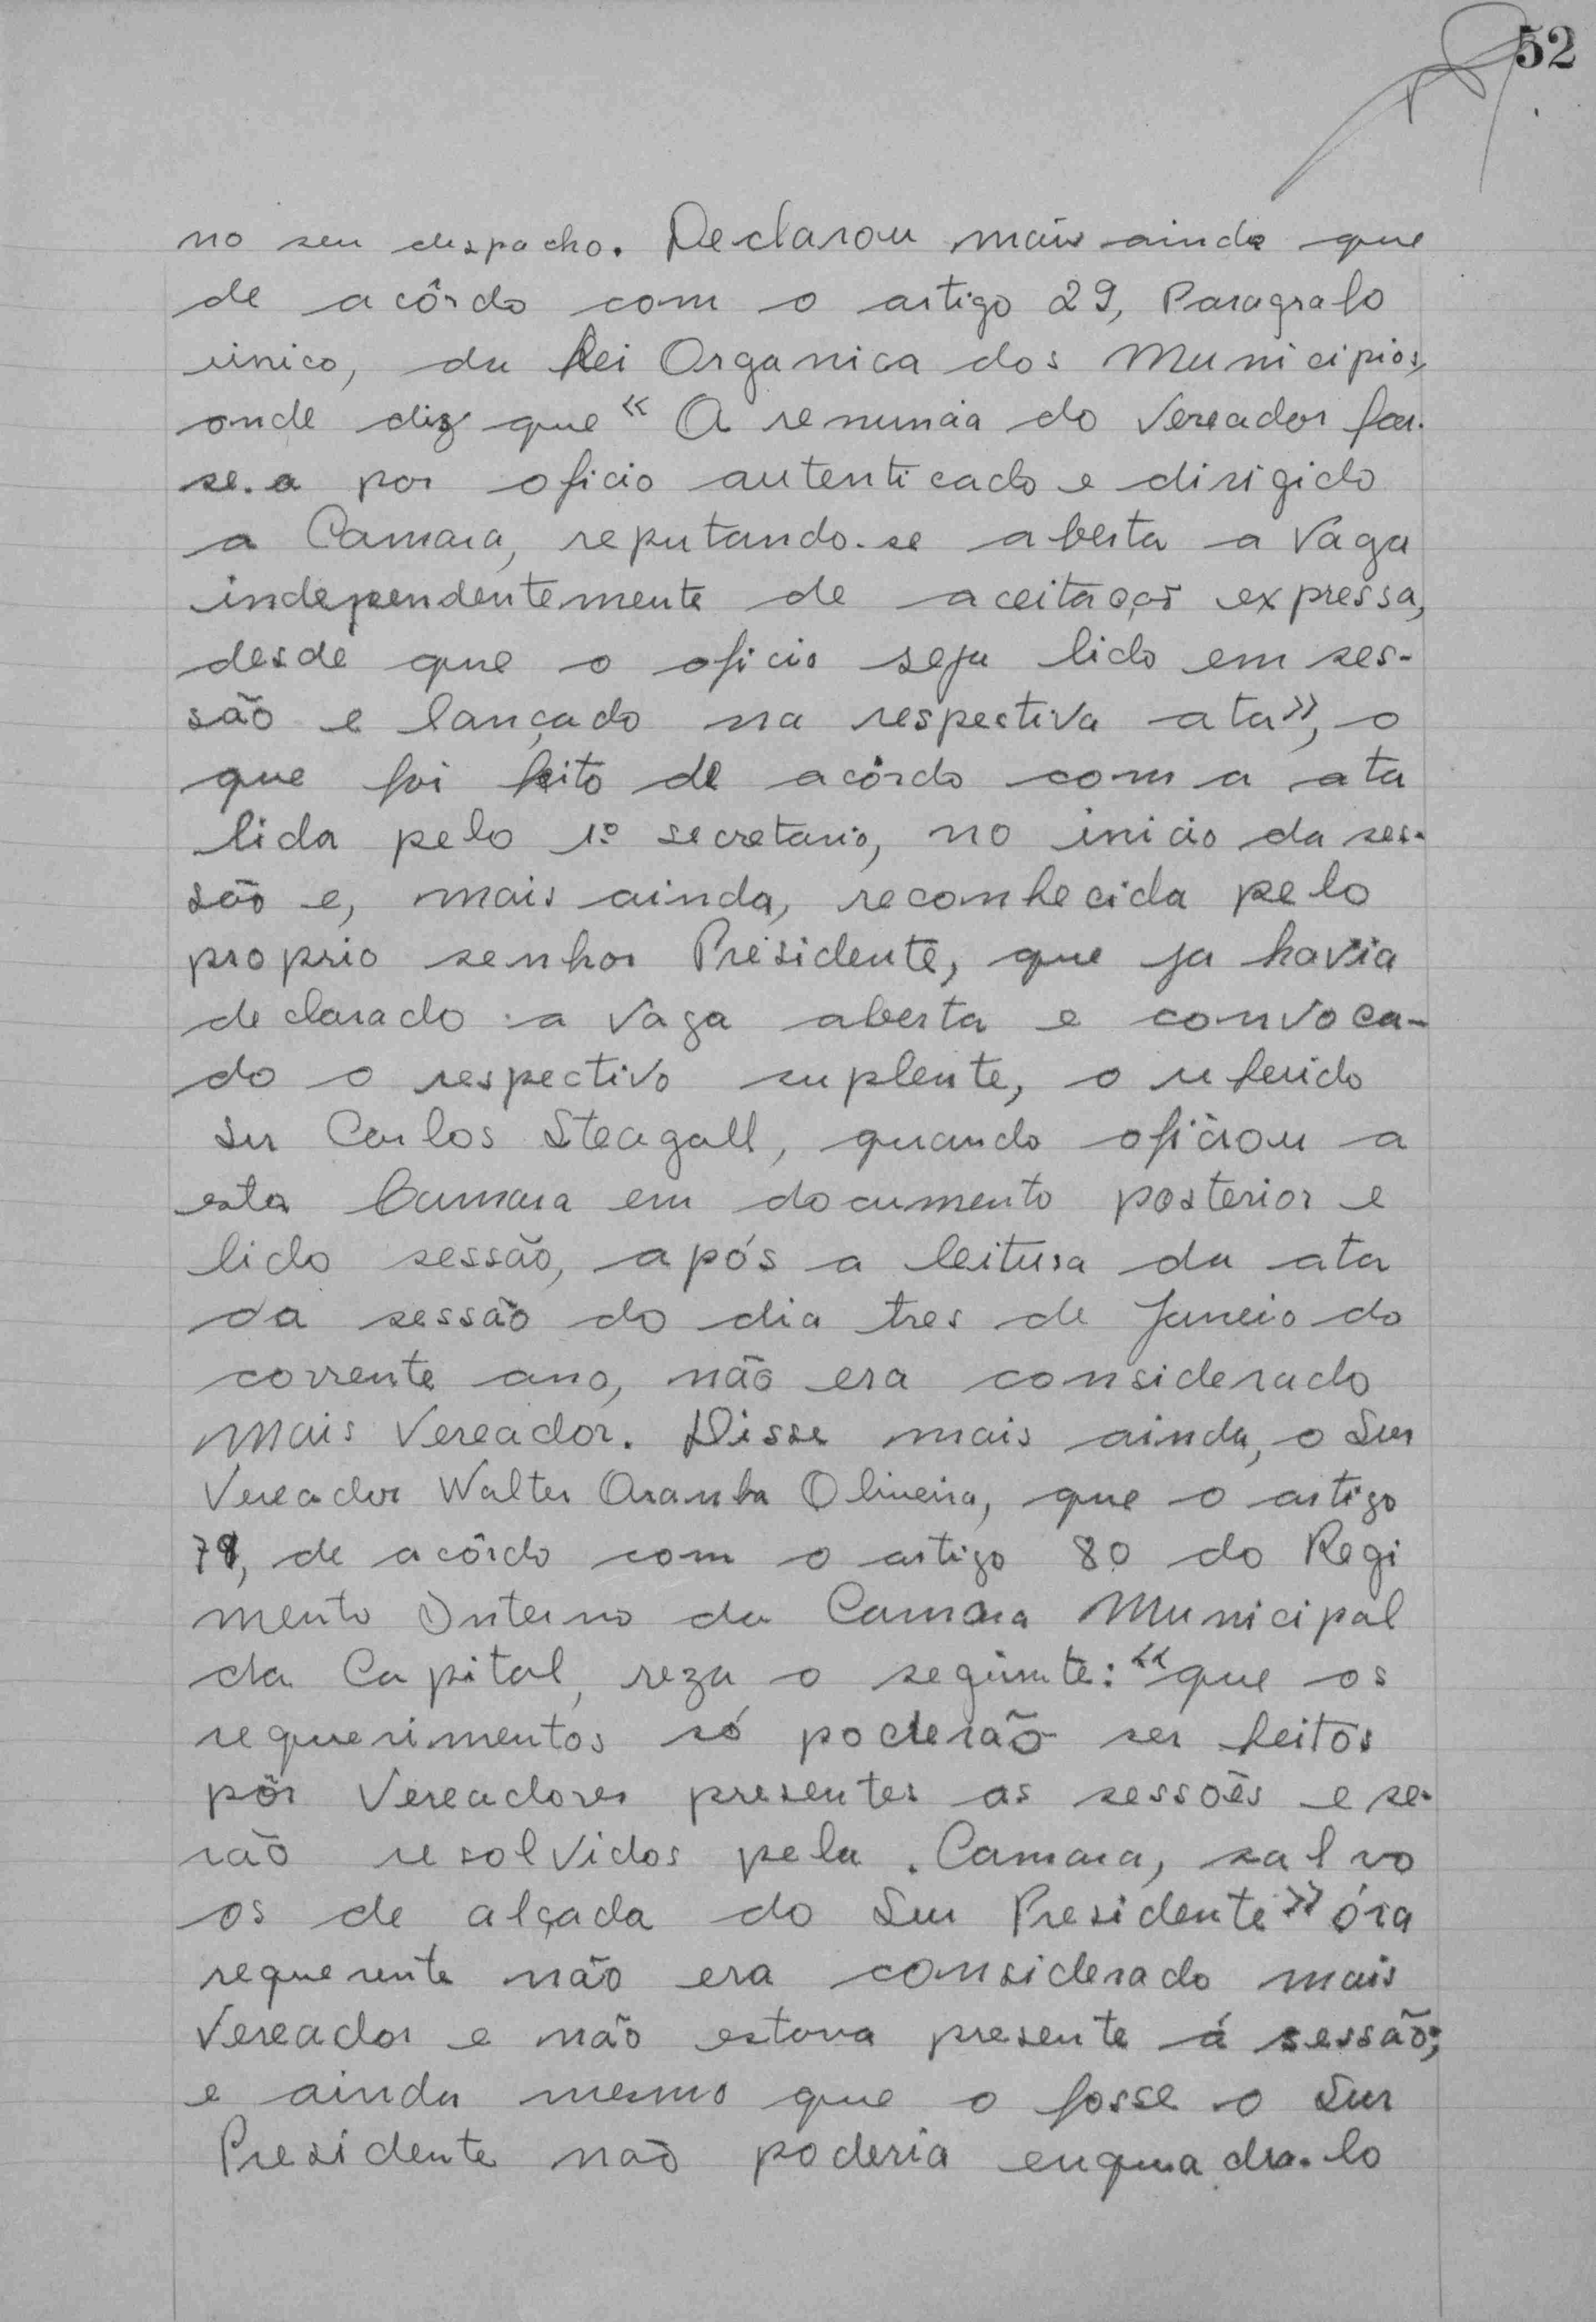 52
no seu despacho. Declarou mais ainda que
de acôrdo com o artigo 29, Paragrafo
unico, da Lei Organica dos Municipios,
onde diz que “A renuncia do Vereador far-
se-a por oficio autenticado e dirigido
a Camara, reputando-se aberta a vaga
independentemente de aceitação expressa,
desde que o oficio seja lido em ses-
são e lançado na respectiva ata”, o
que foi feito de acôrdo com a ata
lida pelo 1º secretario, no inicio da ses-
são e, mais ainda, reconhecida pelo
proprio senhor Presidente, que ja havia
declarado a vaga aberta e convoca-
do o respectivo suplente, o referido
snr Carlos Steagall, quando oficiou a
esta Camara em documento posterior e
lido sessão, após a leitura da ata
da sessão do dia tres de Janeio do
corrente ano, não era considerado
mais Vereador. Disse mais ainda, o Snr
Vereador Walter Aranha Oliveira, que o artigo
78, de acôrdo com o artigo 80 do Regi
mento Interno da Camara Municipal
da Capital, reza o seguinte: “que os
requerimentos só poderão ser feitos
pôr Vereadores presentes as sessões e se-
rão resolvidos pela Camara, salvo
os de alçada do Snr Presidente” óra
requerente não era considerado mais
Vereador e não estava presente á sessão;
e ainda mesmo que o fosse o Snr
Presidente não poderia enquadra-lo